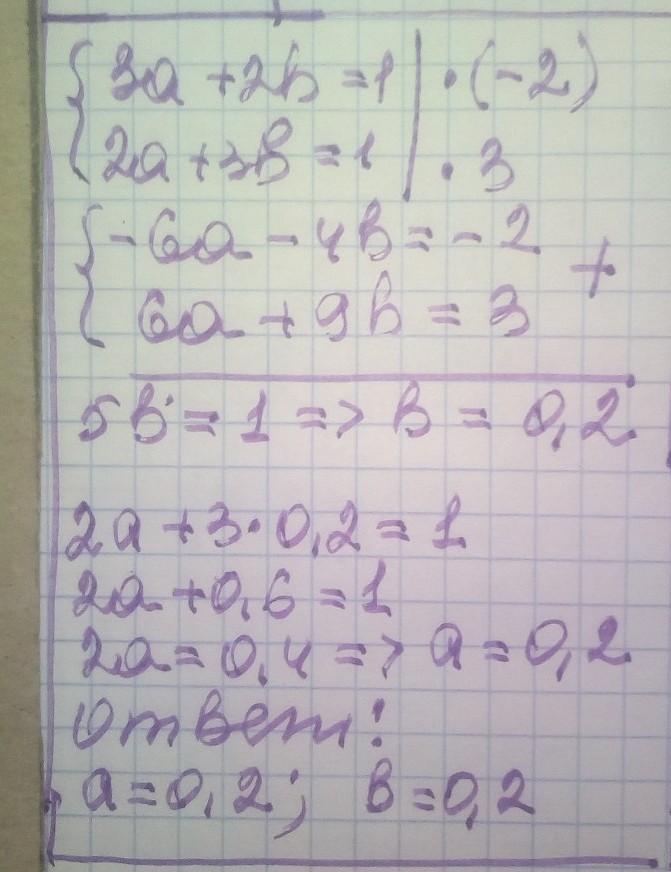 { 3a + 2b = 1 | · (-2)
2a + 3b = 1 | · 3
{ -6a - 4b = -2 +
6a + 9b = 3
5b = 1 => b = 0,2
2a + 3 · 0,2 = 1
2a + 0,6 = 1
2a = 0,4 => a = 0,2
Ответ:
a = 0,2; b = 0,2